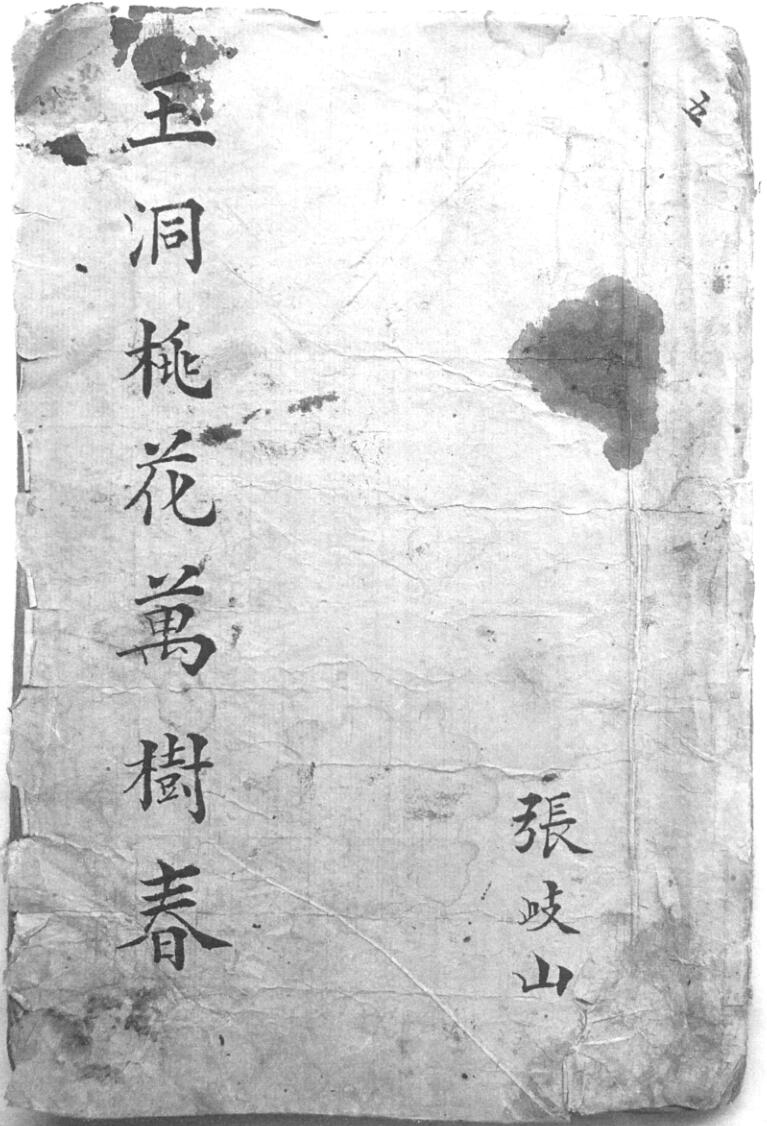 五
張歧山
玉洞桃花萬樹春